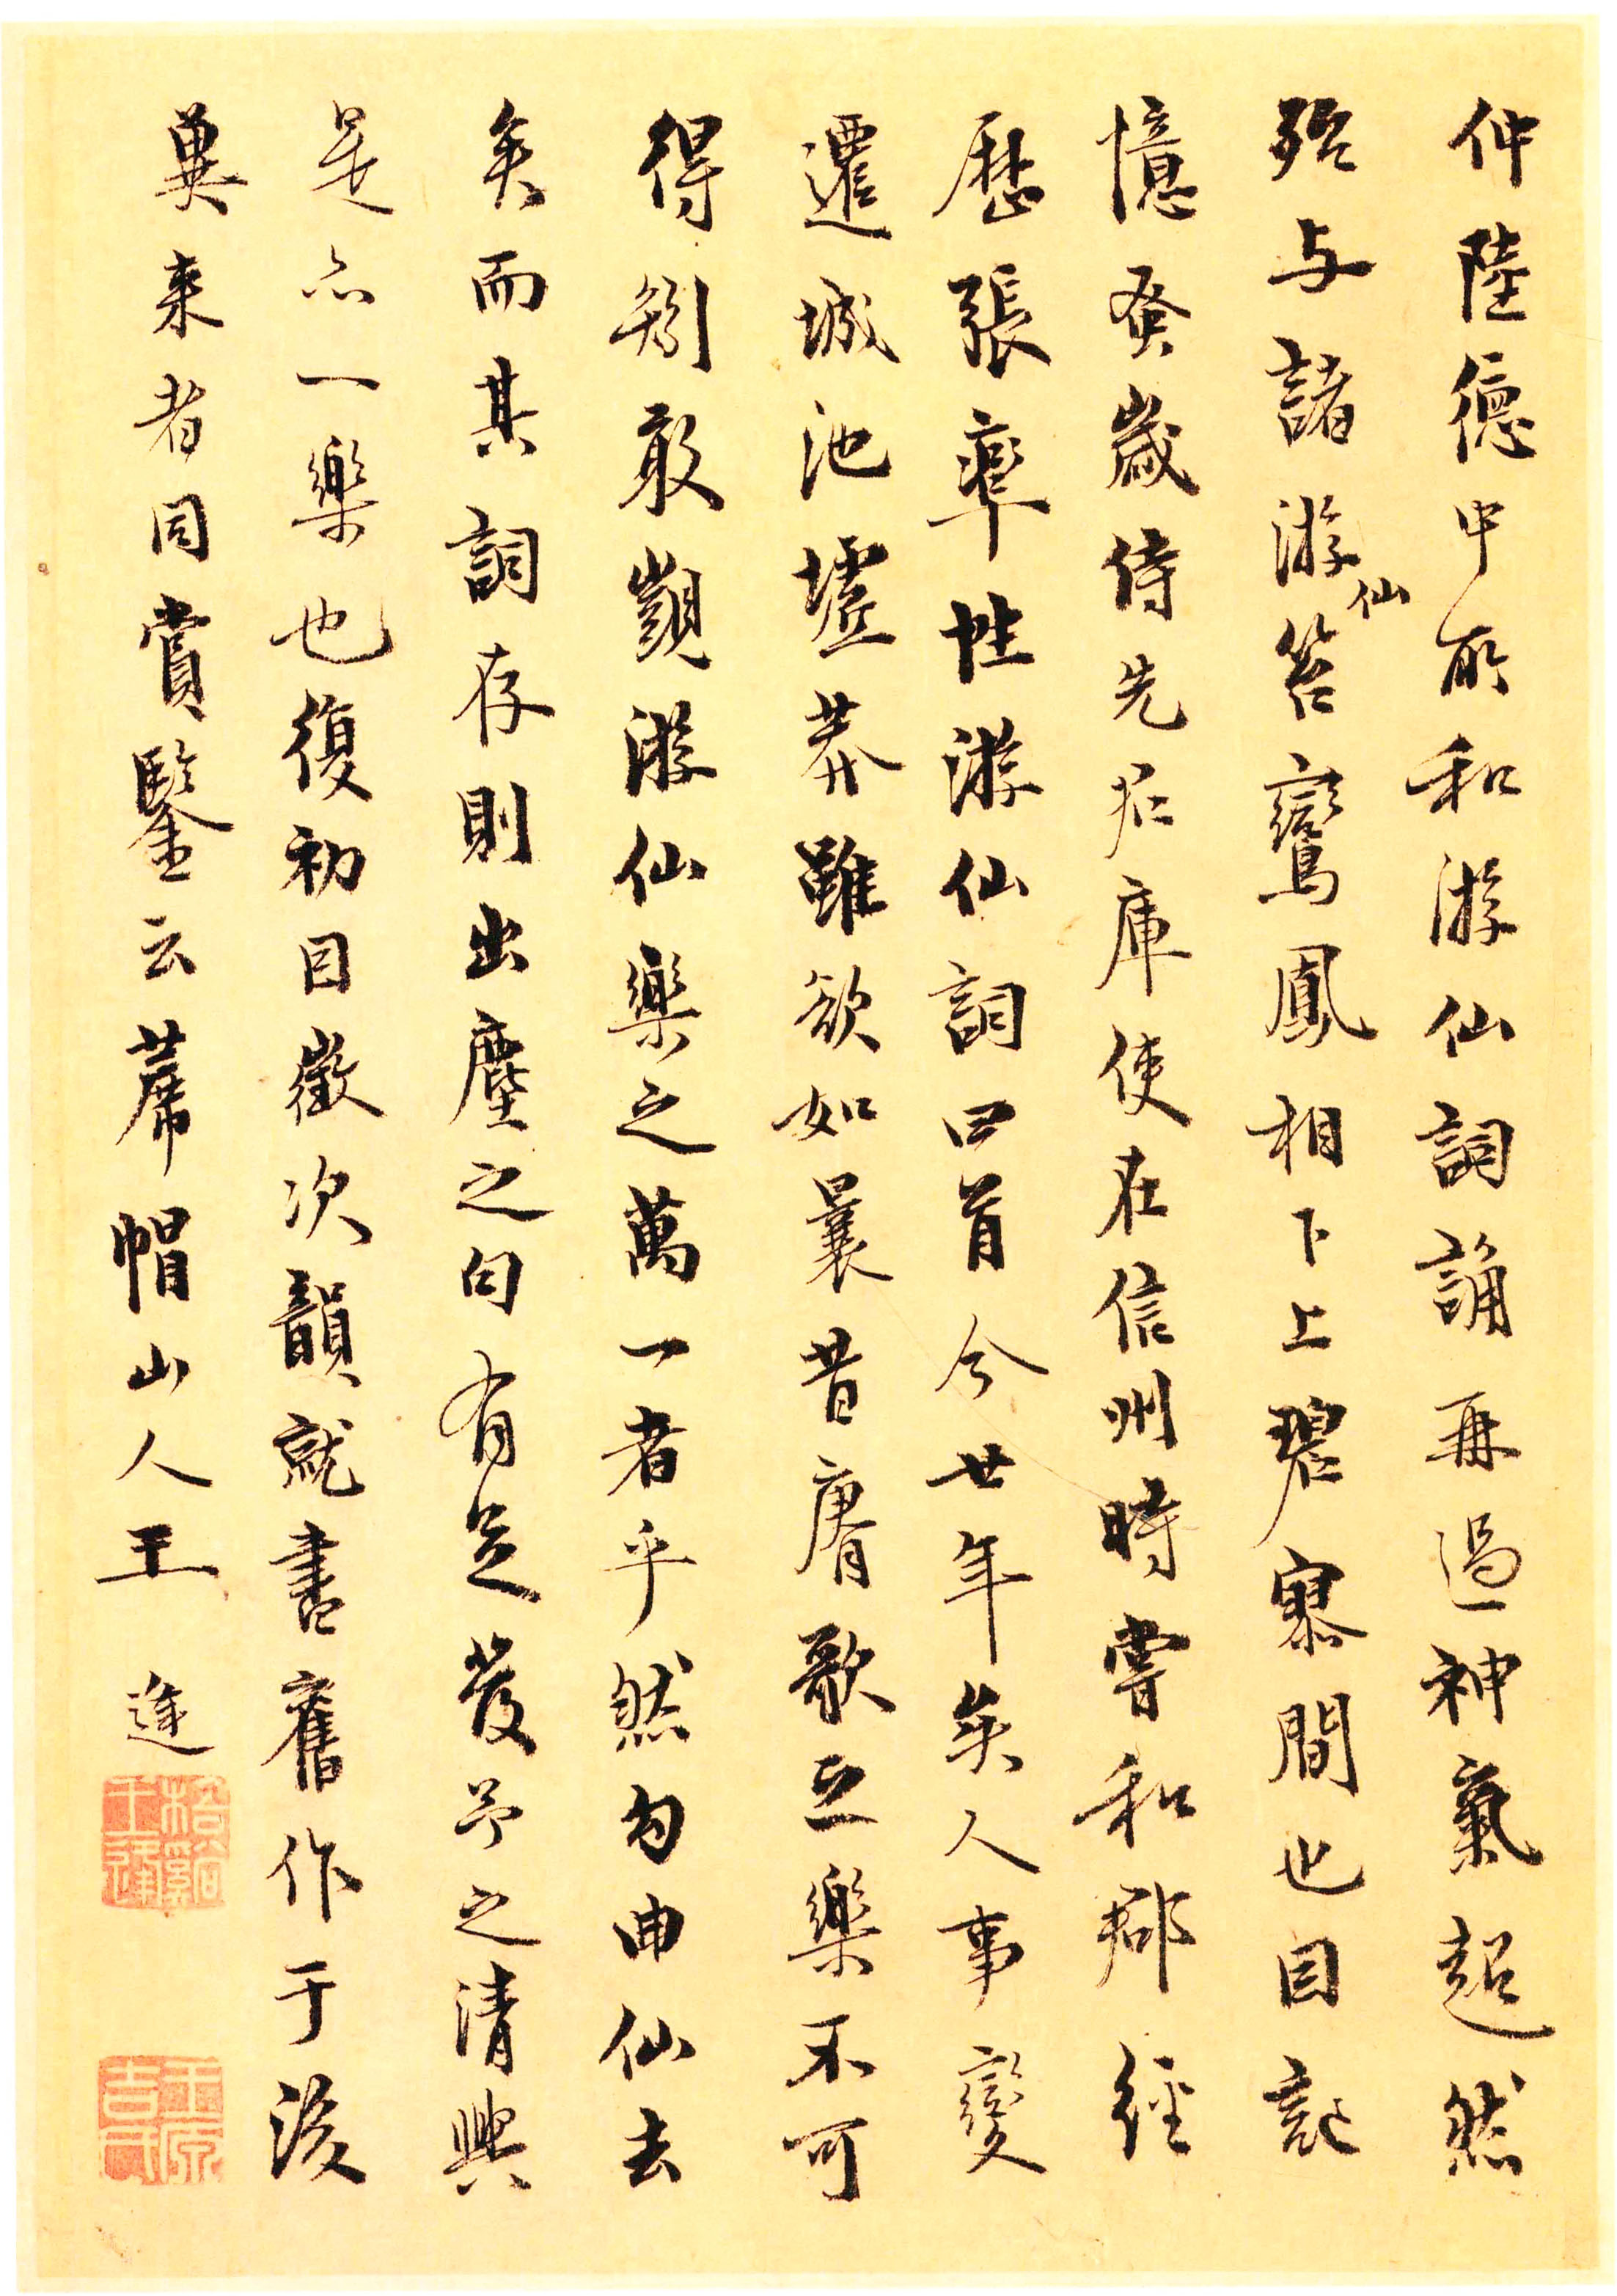 仲陸德中所和游仙詞誦再過神氣超然
殆与諸游仙笞鸞鳳相下上碧寥間也因記
憶蚤歲侍先君庫使在信州時嘗和郡經
歷張率性游仙詞四首今廿年矣人事變
遷城池壚莽雖欲如曩昔賡歌之樂不可
得矧敢覬游仙樂之萬一者乎然勾曲仙去
矣而其詞存則出塵之句有足發予之清興
是亦一樂也復初因徵次韻就書舊作于後
冀来者同賞鑒云蓆帽山人王逢
梧谿王逢
王原吉氏